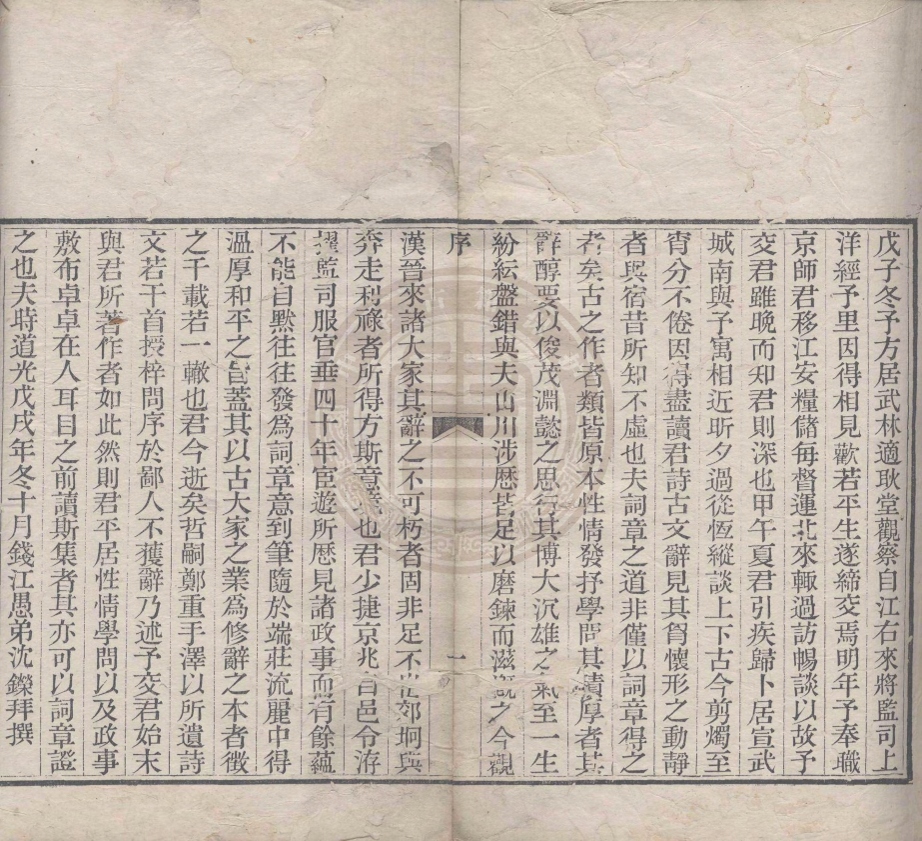 戊子冬予方居武林適耿堂觀察自江右來將監司上
洋經予里因得相見歡若平生遂締交焉明年予奉職
京師君移江安糧儲每督運北來輙過訪暢談以故予
交君雖晚而知君則深也甲午夏君引疾歸卜居宣武
城南與予寓相近昕夕過從恆縱談上下古今剪燭至
宵分不倦因得盡讀君詩古文辭見其胷懷形之動靜
者與宿昔所知不虛也夫詞章之道非僅以詞章得之
者矣古之作者類皆原本性情發抒學問其積厚者其
辭醇要以俊茂淵懿之思行其博大沉雄之氣至一生
紛紜盤錯與夫山川涉歷皆足以磨鍊而滋溉之今觀
序
一
漢晉來諸大家其辭之不可朽者固非足不出郊坰與
奔走利祿者所得方斯意也君少捷京兆自邑令洊
擢監司服官垂四十年宦遊所歷見諸政事而有餘蘊
不能自默往往發爲詞章意到筆隨於端莊流麗中得
溫厚和平之旨蓋其以古大家之業爲修辭之本者徵
之千載若一轍也君今逝矣哲嗣鄭重手澤以所遺詩
文若干首授梓問序於鄙人不獲辭乃述予交君始末
與君所著作者如此然則君平居性情學問以及政事
敷布卓卓在人耳目之前讀斯集者其亦可以詞章證
之也夫時道光戊戌年冬十月錢江愚弟沈鑅拜撰